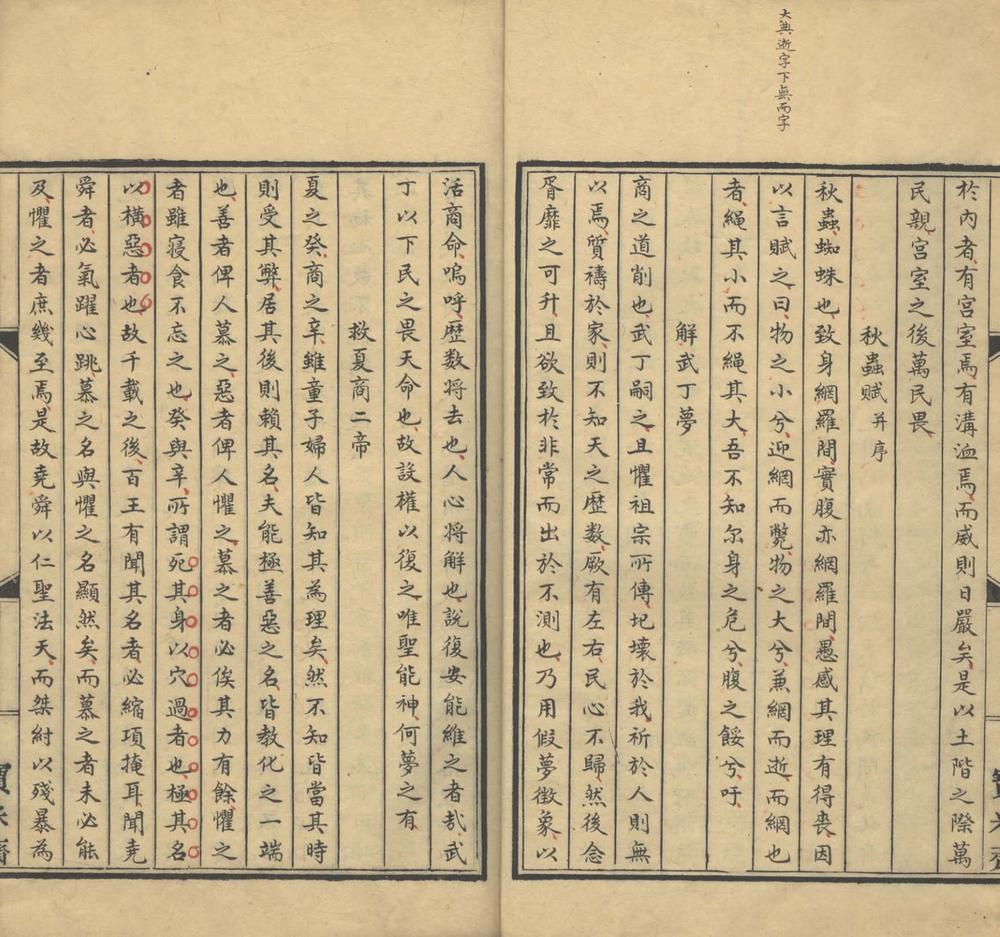 大典逝字下無而字
於內者有宮室焉有溝洫焉而威則日嚴矣是以土階之際萬
民親宮室之後萬民畏
秋蟲賦并序
秋蟲蜘蛛也致身網羅間實腹亦網羅間愚感其理有得喪因
以言賦之曰物之小兮迎網而斃物之大兮兼網而逝而網也
者繩其小而不繩其大吾不知尔身之危兮腹之餒兮吁
解武丁夢
商之道削也武丁嗣之且懼祖宗所傳圮壞於我祈於人則無
以焉質禱於家則不知天之歷数厥有左右民心不歸然後念
胥靡之可升且欲致於非常而出於不測也乃用假夢徴象以
活商命嗚呼歷数将去也人心将解也說復安能維之者㦲武
丁以下民之畏天命也故設權以復之唯聖能神何夢之有
救夏商二帝
夏之癸商之辛雖童子婦人皆知其為理矣然不知皆當其時
則受其弊居其後則賴其名夫能極善惡之名皆教化之一端
也善者俾人慕之惡者俾人懼之慕之者必俟其力有餘懼之
者雖寢食不忘之也癸與辛所謂死其身以穴過者也極其名
以橫惡者也故千載之後百王有聞其名者必縮項掩耳聞堯
舜者必氣躍心跳慕之名與懼之名顯然矣而慕之者未必能
及懼之者庶幾至焉是故堯舜以仁聖法天而桀紂以殘暴為